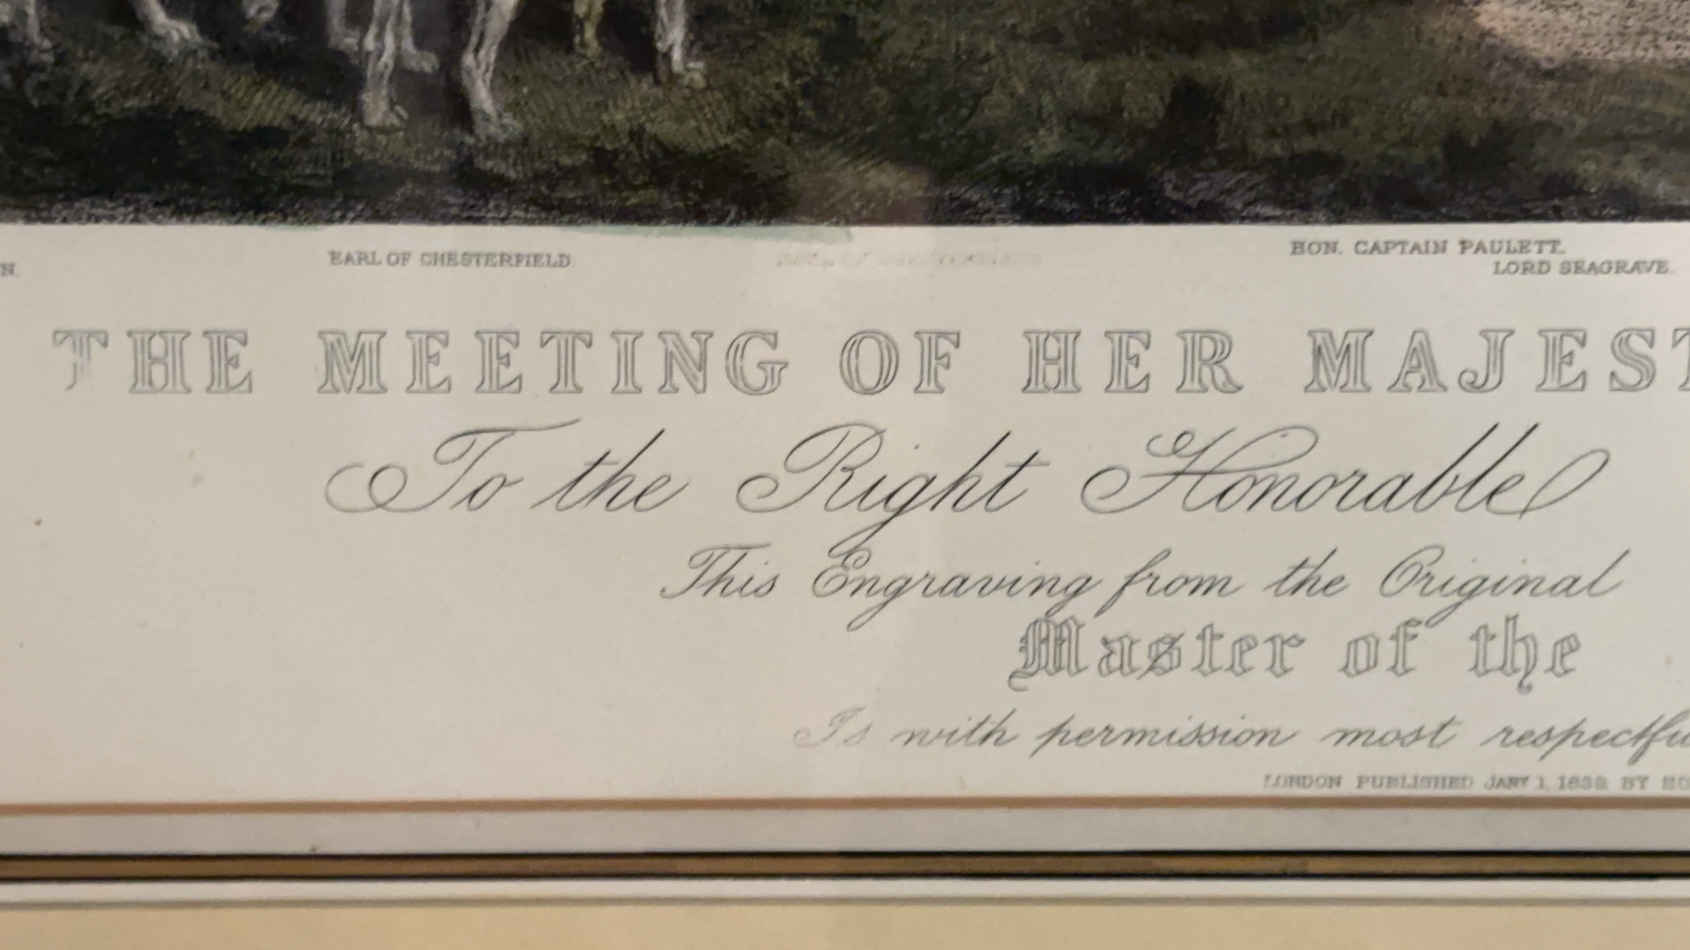 N.
EARL OF CHESTERFIELD
HON. CAPTAIN PAULETT.
LORD SEAGRAVE.
THE MEETING OF HER MAJEST
To the Right Honorable
This Engraving from the Original
Master of the
Is with permission most respectfu
LONDON PUBLISHED JANY 1, BY